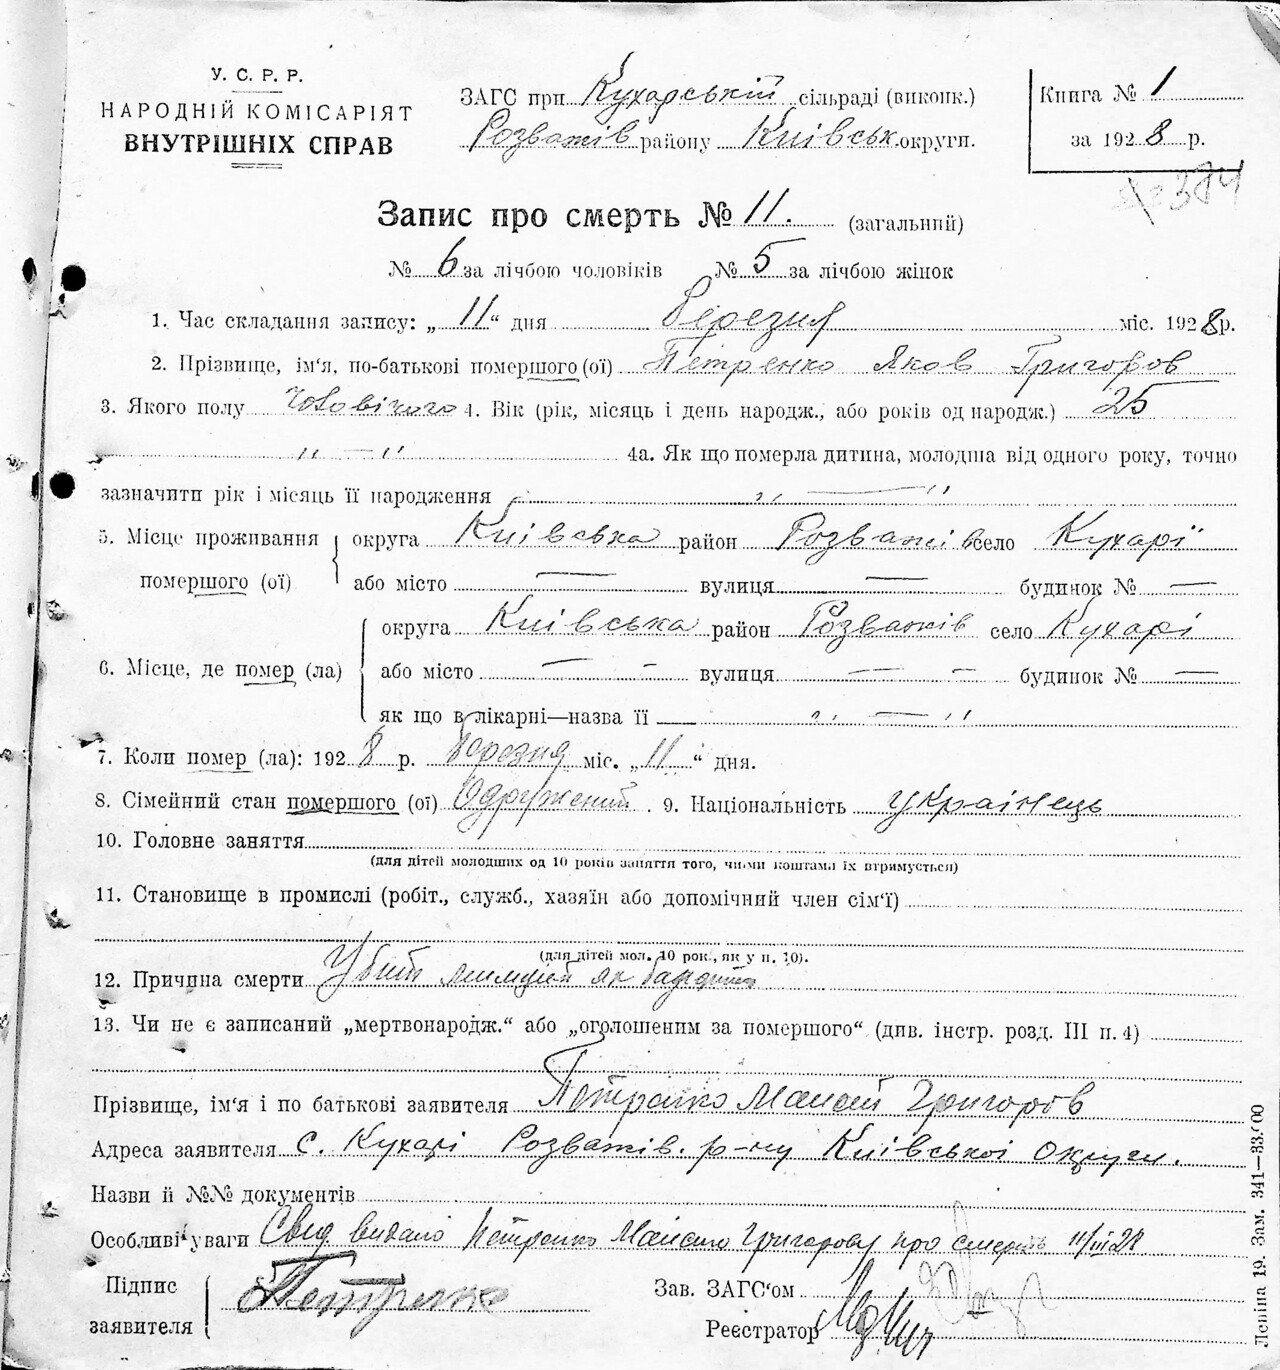 У. С. Р. Р.
НАРОДНІЙ КОМІСАРІЯТ
ВНУТРІШНІХ СПРАВ
ЗАГС при Кухарській сільраді (виконк.)
Розважів району Київськ. округи.
Книга № 1
за 1928 р.
Запис про смерть № 11. (загальний)
№ 6 за лічбою чоловіків № 5 за лічбою жінок
1. Час складання запису: „ 11 “ дня Березня міс. 1928 р.
2. Прізвище, ім'я, по-батькові помершого (ої) Петренко Яков Григоров
3. Якого полу Чоловічого 4. Вік (рік, місяць і день народж., або років од народж.) 25
" — " 4а. Як що померла дитина, молодша від одного року, точно
зазначити рік і місяць її народження " — "
5. Місце проживання помершого (ої) округа Київська район Розважів село Кухарі
або місто — вулиця — будинок № —
6. Місце, де помер (ла) округа Київська район Розважів село Кухарі
або місто — - вулиця — - будинок № —
як що в лікарні—назва її " — "
7. Коли помер (ла): 1928 р. Березня міс. „ 11 “ дня.
8. Сімейний стан помершого (ої) Одружений. 9. Національність українець
10. Головне заняття
(для дітей молодших од 10 років заняття того, чиїми коштами їх втримується)
11. Становище в промислі (робіт., служб., хазяїн або допомічний член сім'ї)
(для дітей мол. 10 рок., як у п. 10).
12. Причина смерти Убит міліцией як бандит
13. Чи не є записаний „мертвонародж.“ або „оголошеним за помершого“ (див. інстр. розд. III п. 4)
Прізвище, ім'я і по батькові заявителя Петренко Мойсей Григоров
Адреса заявителя с. Кухарі Розважів. р-ну Київської Округи.
Назви й №№ документів
Особливі уваги Свид видано Петренко Григорову про смерть 11/III 28
Підпис заявителя Петренко
Зав. ЗАГС'ом
Реєстратор
Леніна 19. Зам. 341—33.000